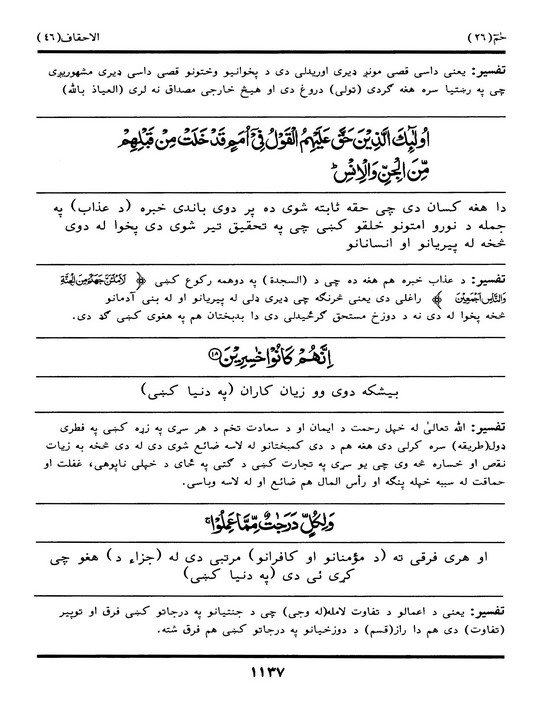 حٰمٓ (٢٦)
الاحقاف (٤٦)
تفسير: يعنی داسی قصی مونږ ډيری اوريدلی دی د پخوانيو وختونو قصی داسی ډيری مشهوريږی
چی په رښتيا سره هغه گردی (ټولی) دروغ دی او هيڅ خارجی مصداق نه لری (العياذ بالله)
اُولٰٓئِكَ الَّذِيْنَ حَقَّ عَلَيْهِمُ الْقَوْلُ فِيْٓ اُمَمٍ قَدْ خَلَتْ مِنْ قَبْلِهِمْ
مِّنَ الْجِنِّ وَالْاِنْسِ ؕ
دا هغه کسان دی چی حقه ثابته شوی ده پر دوی باندی خبره (د عذاب) په
جمله د نورو امتونو خلقو کښی چی په تحقيق تير شوی دی پخوا له دوی
څخه له پيريانو او انسانانو
تفسير: د عذاب خبره هم هغه ده چی د (السجدة) په دوهمه رکوع کښی ﴿ لَاَمْلَئَنَّ جَهَنَّمَ مِنَ الْجِنَّةِ
وَالنَّاسِ اَجْمَعِيْنَ ﴾ راغلی دی يعنی څرنگه چی ډيری ډلی له پيريانو او له بنی آدمانو
څخه پخوا له دی نه د دوزخ مستحق گرځيدلی دی دا بدبختان هم په هغوی کښی گډ دی.
اِنَّهُمْ كَانُوْا خٰسِرِيْنَ ۱۸
بيشکه دوی وو زيان کاران (په دنيا کښی)
تفسير: الله تعالیٰ له خپل رحمت د ايمان او د سعادت تخم د هر سړی په زړه کښی په فطری
ډول(طريقه) سره کرلی دی هغه هم د دی کمبختانو له لاسه ضائع شوی دی له دی څخه به زيات
نقص او خساره څه وی چی يو سړی په تجارت کښی د گټی په ځای د خپلی ناپوهی، غفلت او
حماقت له سببه خپله پنگه او رأس المال هم ضائع او له لاسه وباسی.
وَلِكُلٍّ دَرَجٰتٌ مِّمَّا عَمِلُوْا ۚ
او هری فرقی ته (د مؤمنانو او کافرانو) مرتبی دی له (جزاء د) هغو چی
کړی ئی دی (په دنيا کښی)
تفسير: يعنی د اعمالو د تفاوت لامله(له وجی) چی د جنتيانو په درجاتو کښی فرق او توپير
(تفاوت) دی هم دا راز(قسم) د دوزخيانو په درجاتو کښی هم فرق شته.
١١٣٧